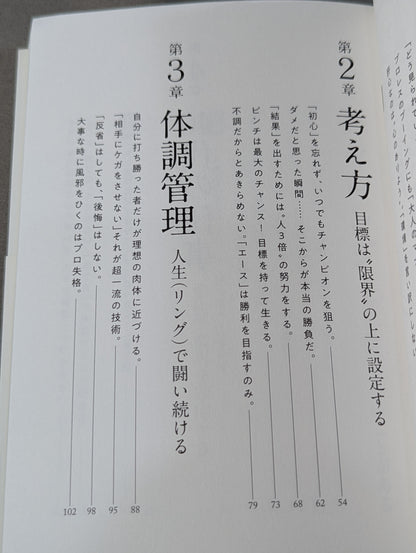 第2章 考え方 目標は〝限界〟の上に設定する
「初心」を忘れず、いつでもチャンピオンを狙う。 54
ダメだと思った瞬間……そこからが本当の勝負だ。 62
「結果」を出すためには〝人3倍〟の努力をする。 68
ピンチは最大のチャンス！ 目標を持って生きる。 73
不調だからとあきらめない。「エース」は勝利を目指すのみ。 79
第3章 体調管理 人生（リング）で闘い続ける
自分に打ち勝った者だけが理想の肉体に近づける。 88
「相手にケガをさせない」それが超一流の技術。 95
「反省」はしても、「後悔」はしない。 98
大事な時に風邪をひくのはプロ失格。 102